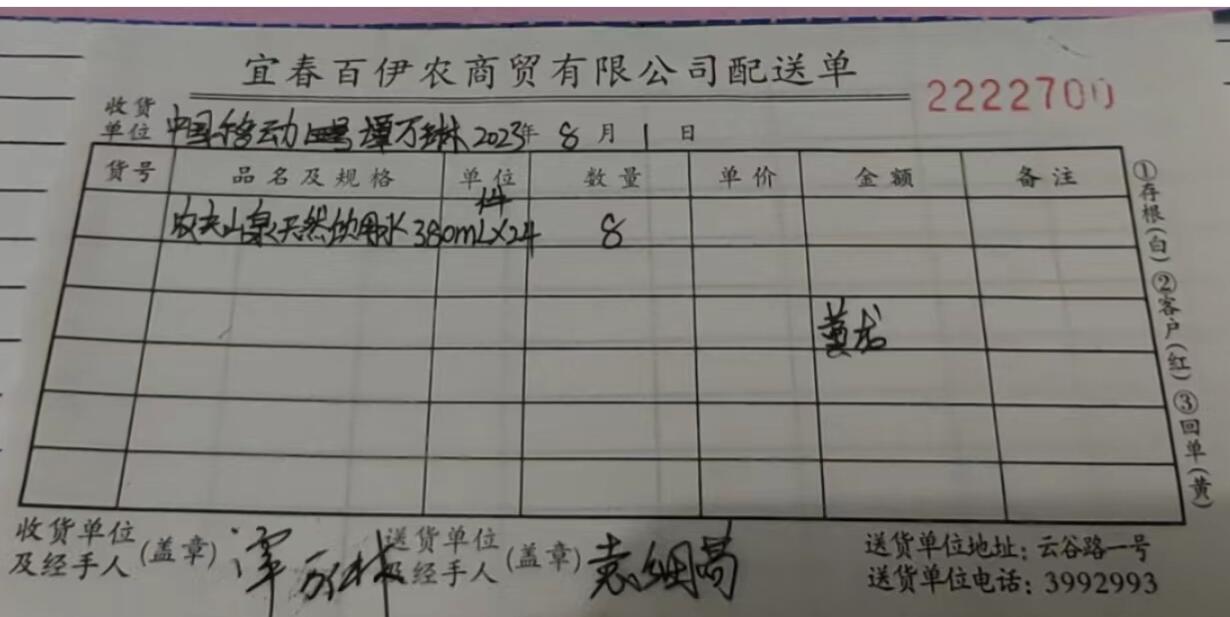 宜春百伊农商贸有限公司配送单
2222700
收货单位 中国移动 谭万琳 2023年 8 月 1 日
货号 品名及规格 单位 数量 单价 金额 备注
件
农夫山泉天然饮用水 380mL×24 8
①存根(白) ②客户(红) ③回单(黄)
收货单位及经手人 (盖章) 谭万林 送货单位及经手人 (盖章) 袁细苟
送货单位地址: 云谷路一号
送货单位电话: 3992993